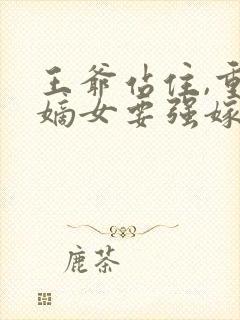 王爷站住,重
嫡女要强嫁
鹿茶